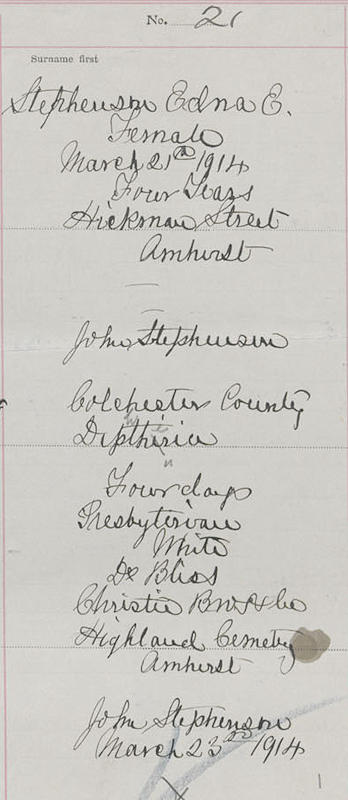 No. 21
Surname first
Stephenson Edna E.
Female
March 21st 1914
Four Years
Hickman Street
Amherst
John Stephenson
Colchester County
Diptheria
Four days
Presbyterian
White
Dr Bliss
Christie Bros & Co
Highland Cemetry
Amherst
John Stephenson
March 23rd 1914